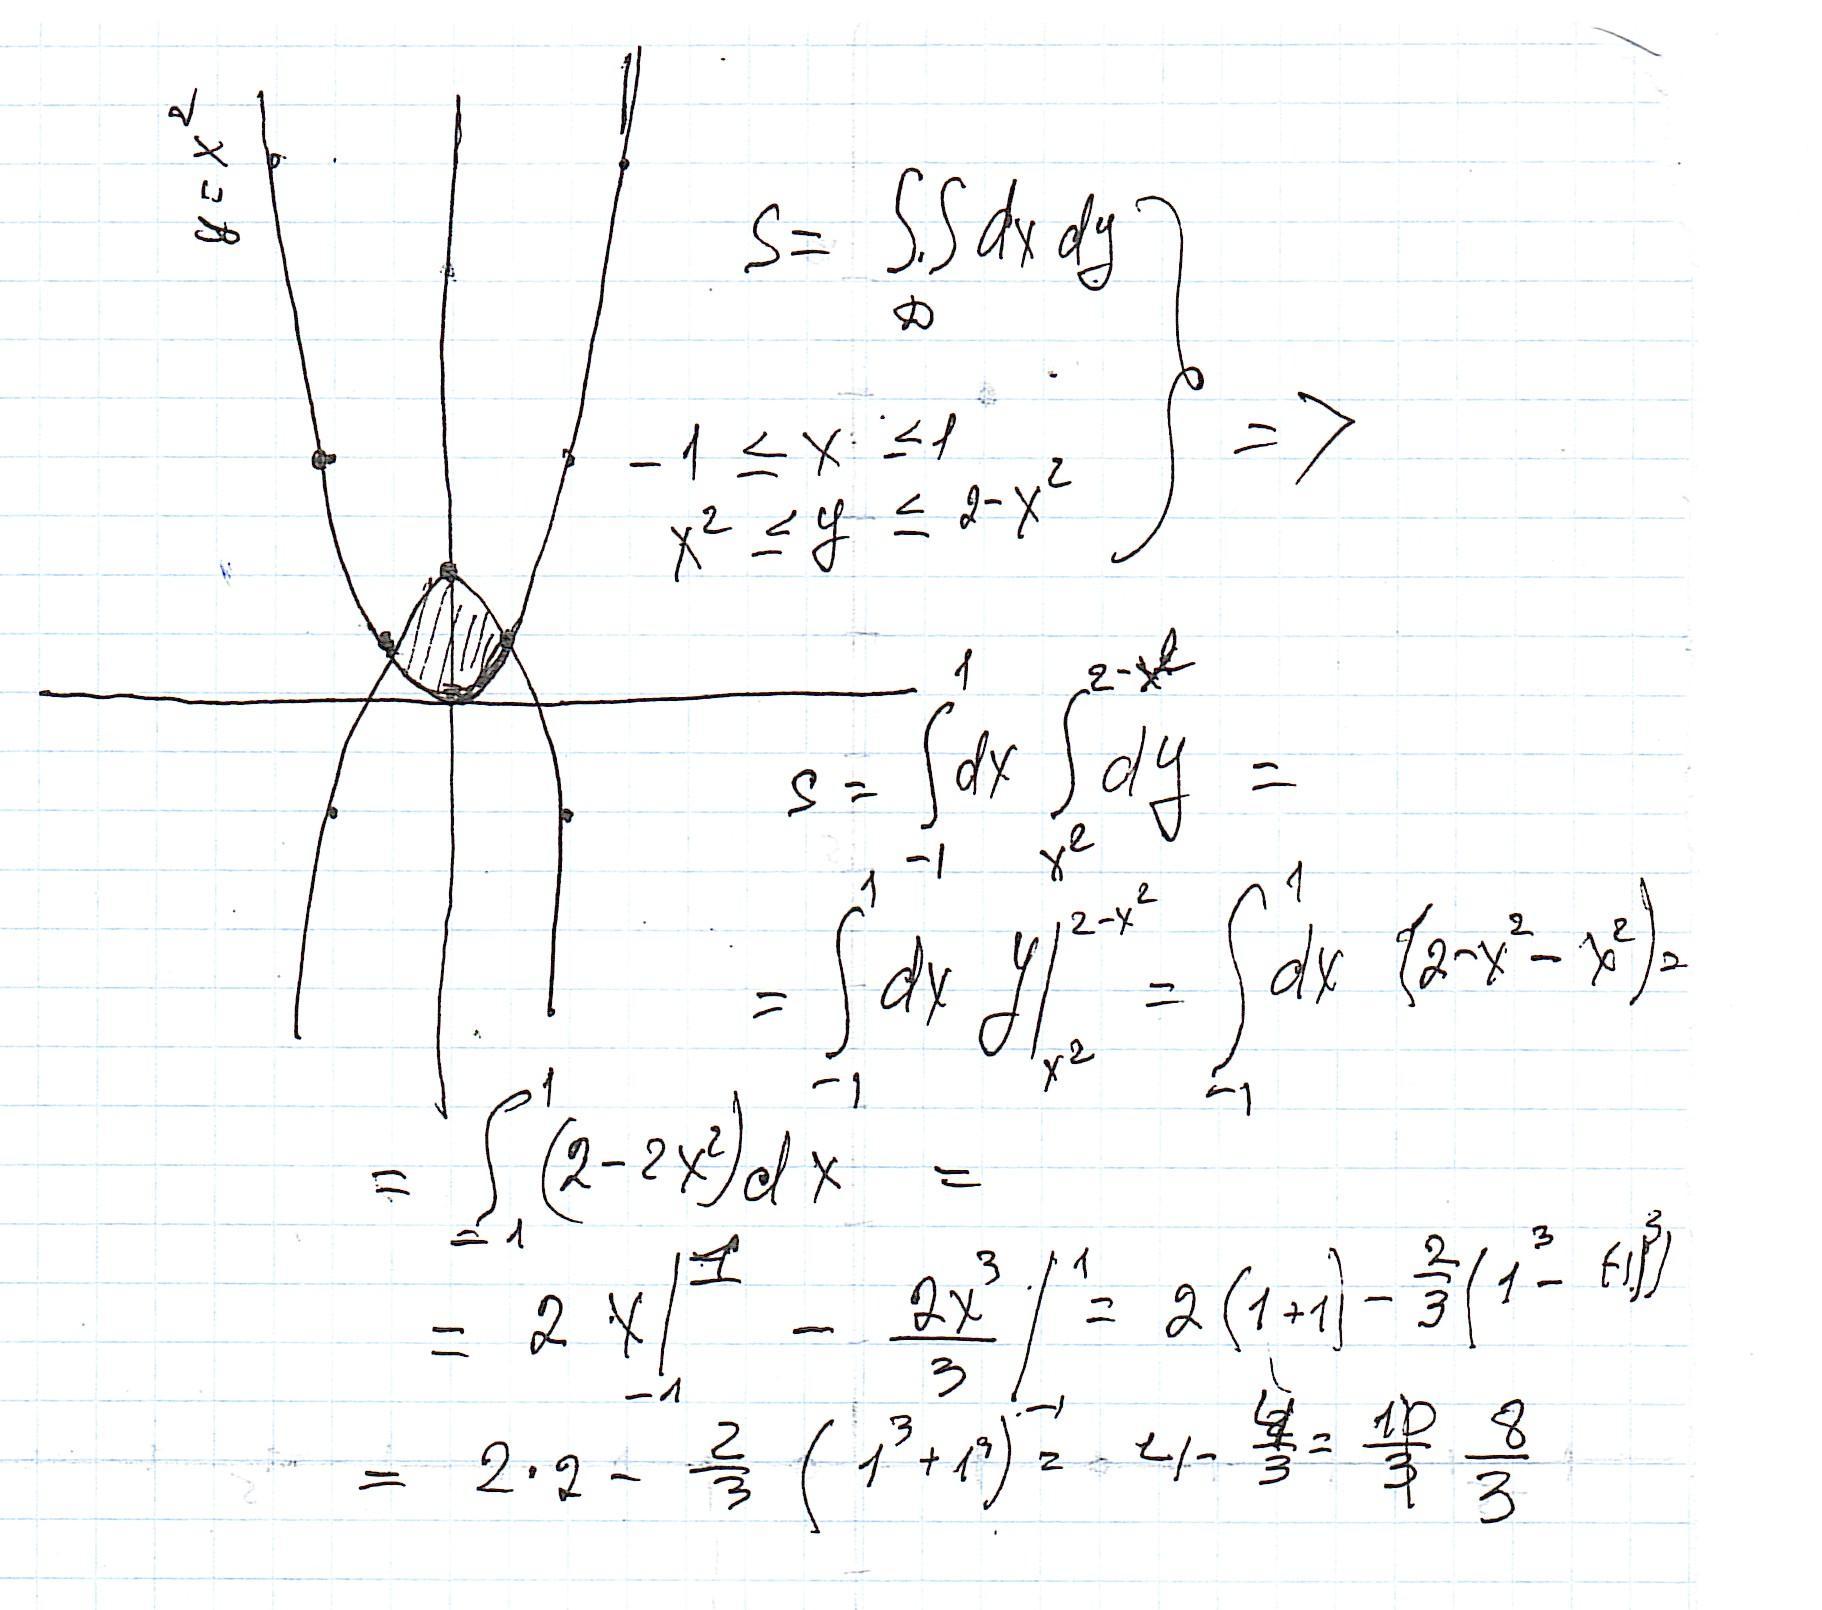 y = x²
S = ∫∫ dx dy
D
-1 ≤ x ≤ 1
x² ≤ y ≤ 2-x²
=>
S = ∫₋₁¹ dx ∫_{x²}^{2-x²} dy =
= ∫₋₁¹ dx y|_{x²}^{2-x²} = ∫₋₁¹ dx (2-x²-x²) =
= ∫₋₁¹ (2-2x²) dx =
= 2x|₋₁¹ - 2x³/3|₋₁¹ = 2(1+1) - 2/3(1³ - (-1)³)
= 2·2 - 2/3 (1³+1³) = 4 - 4/3 = 8/3